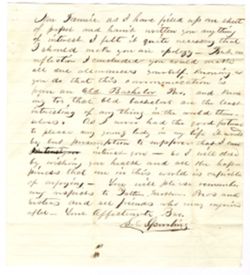 Now Fannie as I have filed up one sheet
of paper and havent written you anything
of interest I felt it quite necessary that
I should make you an apology — But on
reflection I concluded you would make
all due allowances yourself. knowing
you do that this communication is
from an Old Bachelor Bro, and know
ing too, that old bachelors are the least
interesting of any thing in the world them
selves. As I never had the good fortune
to please any young lady in my life I
by presumption to suppose that I can
interest you — so I will close
by wishing you health and all the hap
piness that one in this world is capable
of enjoying — You will please remember
my respects to Father, Mother, Bros and
sisters and all friends who may enquire
after — Your Affectionate Bro,